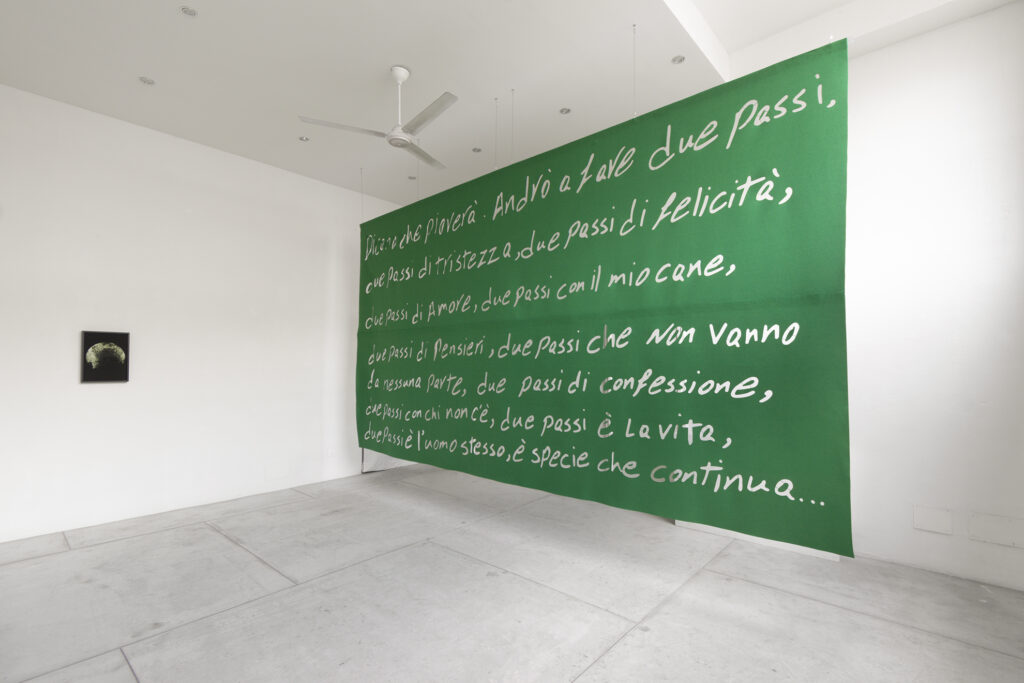 Dicono che pioverà. Andrò a fare due passi,
due passi di tristezza, due passi di felicità,
due passi di Amore, due passi con il mio cane,
due passi di Pensieri, due passi che non vanno
da nessuna parte, due passi di confessione,
due passi con chi non c'è, due passi è la vita,
due Passi è l'uomo stesso, è specie che continua...